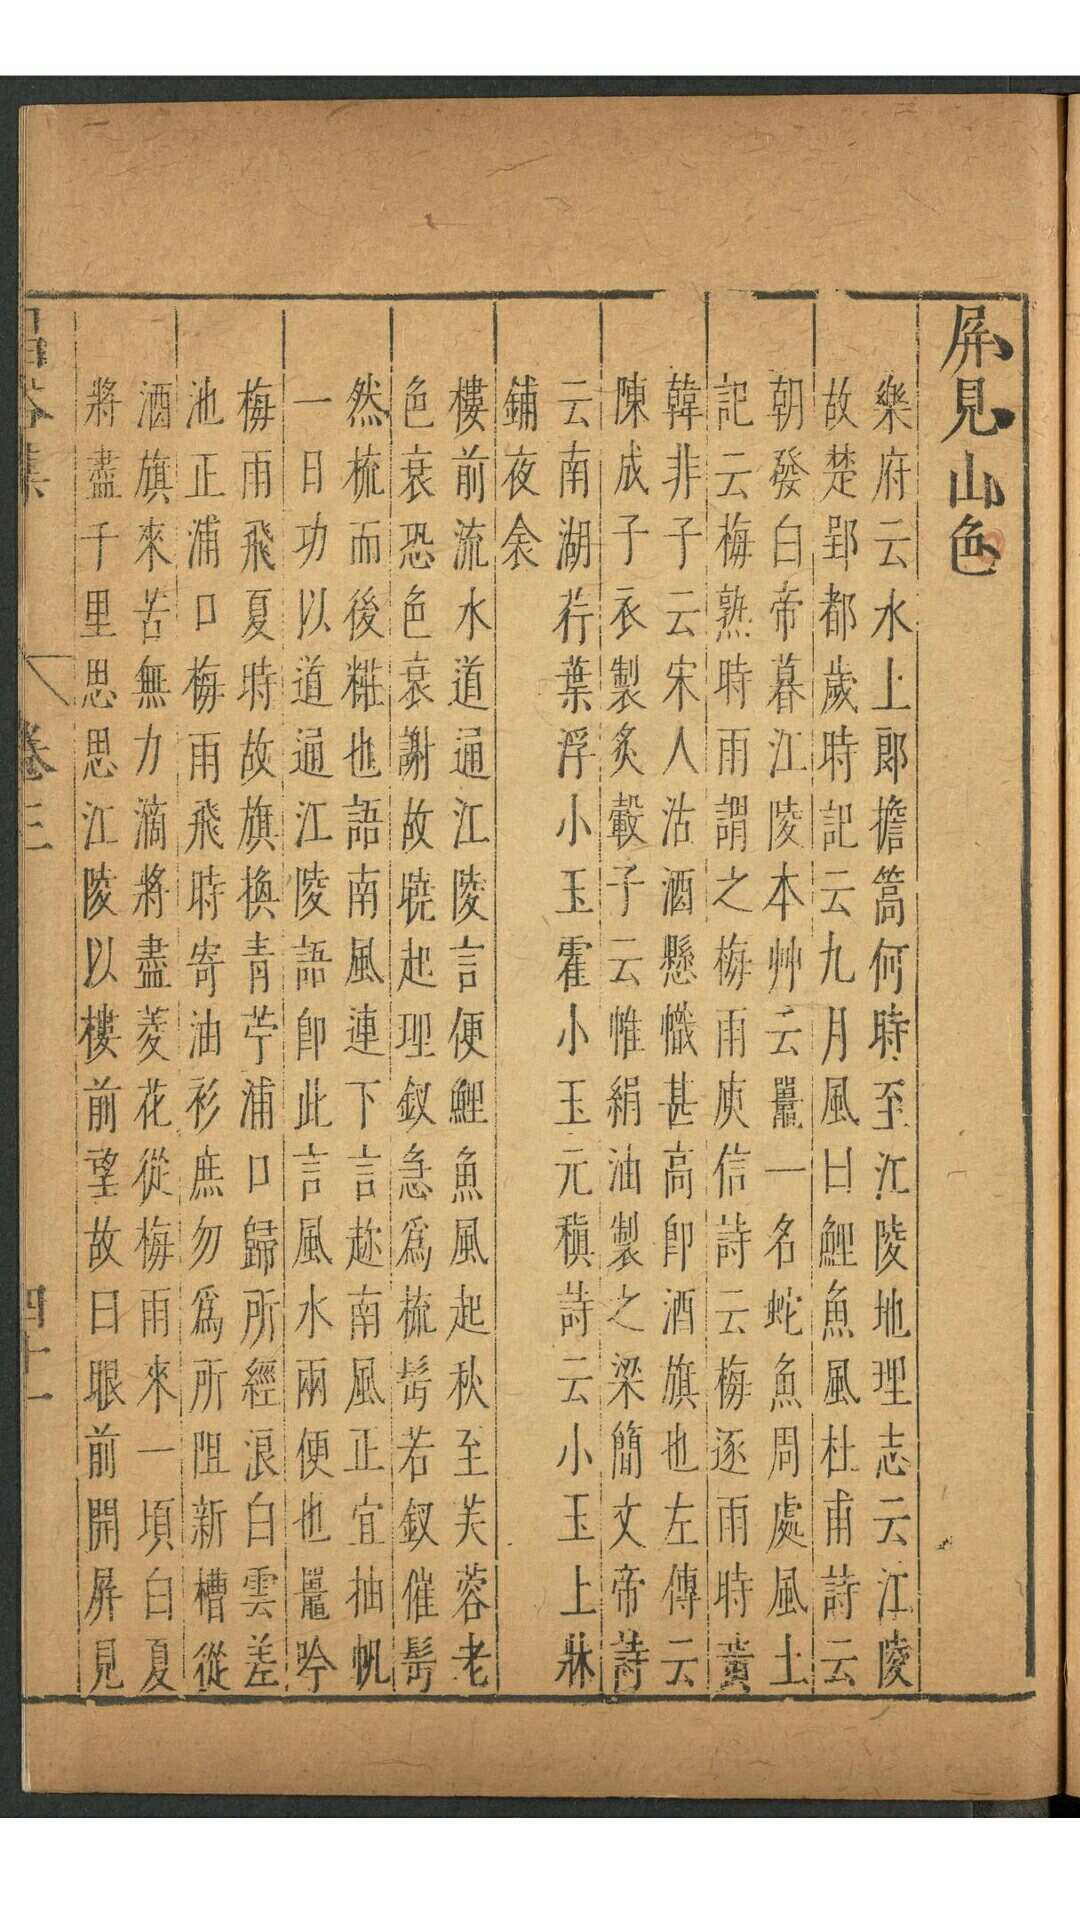 屏見山色
樂府云水上郎擔篙何時至江陵地理志云江陵
故楚郢都歲時記云九月風曰鯉魚風杜甫詩云
朝發白帝暮江陵本艸云鼉一名蛇魚周處風土
記云梅熟時雨謂之梅雨庾信詩云梅逐雨時黃
韓非子云宋人沽酒懸幟甚高卽酒旗也左傳云
陳成子衣製炙轂子云帷絹油製之梁簡文帝詩
云南湖荇葉浮小玉霍小玉元稹詩云小玉上牀
鋪夜衾
樓前流水道通江陵言便鯉魚風起秋至芙蓉老
色衰恐色衰謝故曉起理釵急爲梳髩若釵催髩
然梳而後糚也語南風連下言趂南風正宜抽帆
一日功以道通江陵語卽此言風水兩便也鼉吟
梅雨飛夏時故旗換青苧浦口歸所經浪白雲差
池正浦口梅雨飛時寄油衫庶勿爲所阻新槽從
酒旗來苦無力滴將盡菱花從梅雨來一頃白夏
將盡千里思思江陵以樓前望故曰眼前開屏見
昌谷集 卷三 四十一